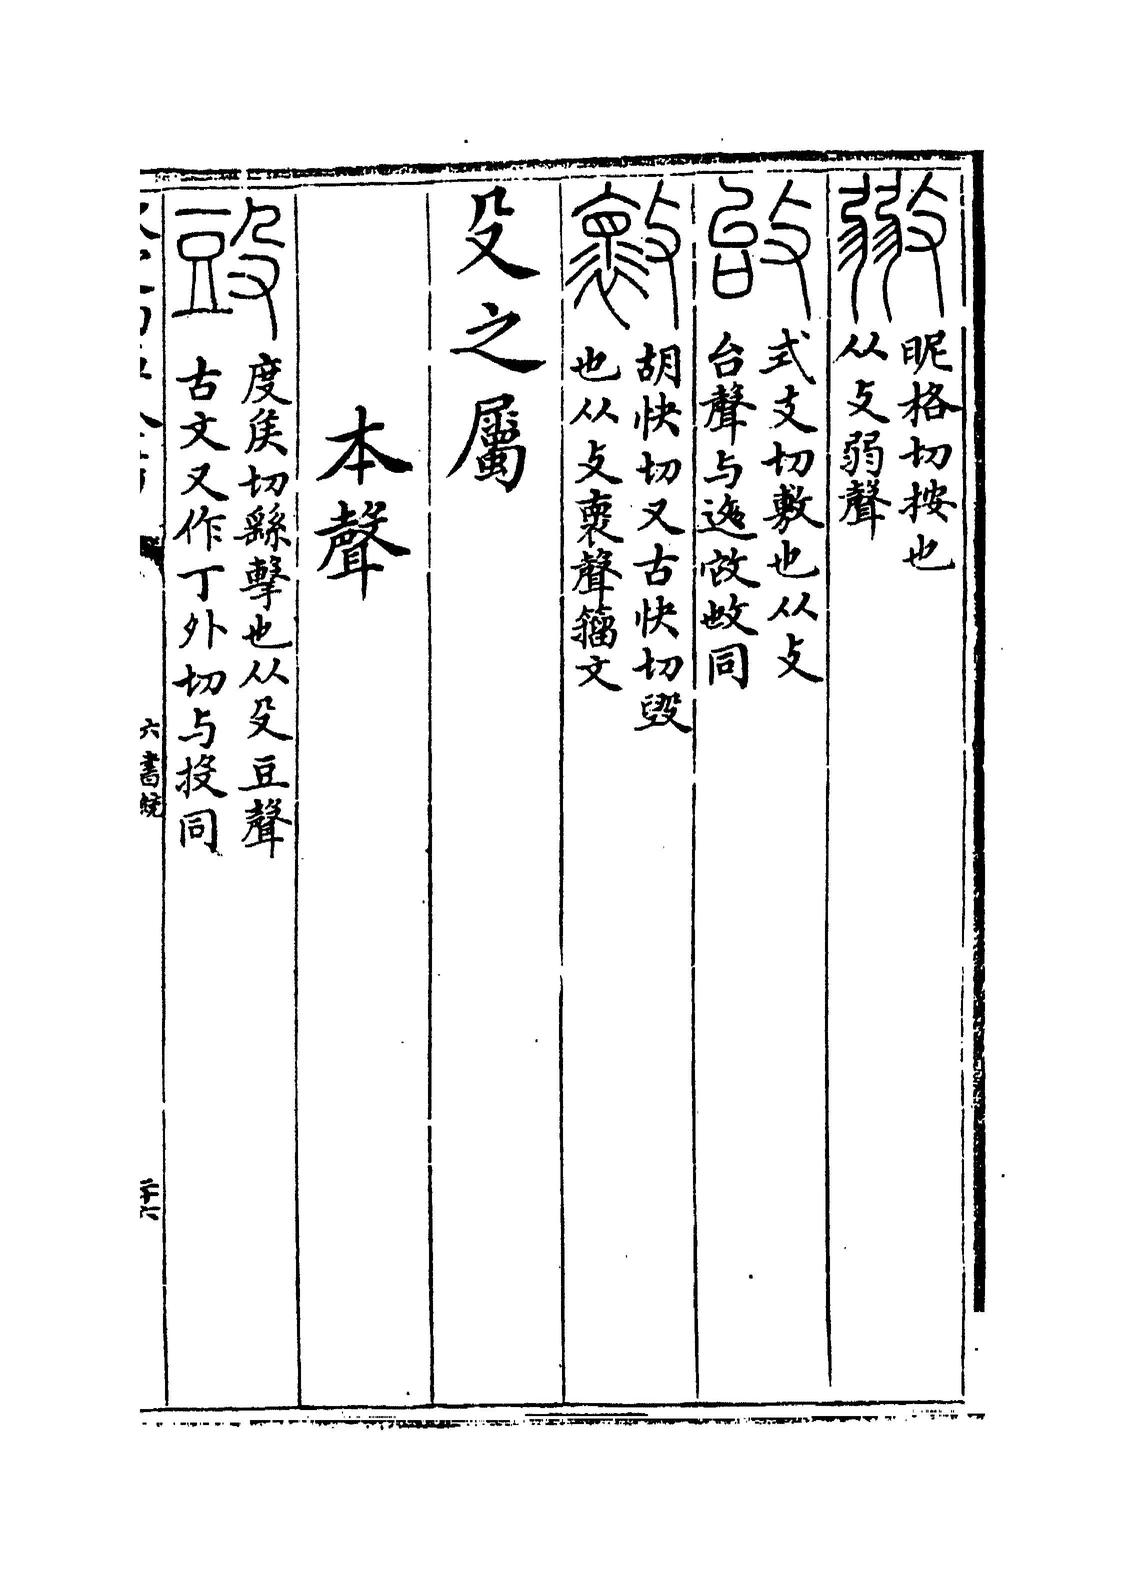 昵格切按也
从攴弱聲
式支切敷也从攴
台聲与迻㪃𢻫同
胡快切又古快切毁
也从攴褱聲籀文
殳之屬
本聲
度矦切繇擊也从殳豆聲
古文又作丁外切与投同
六書統
二十六